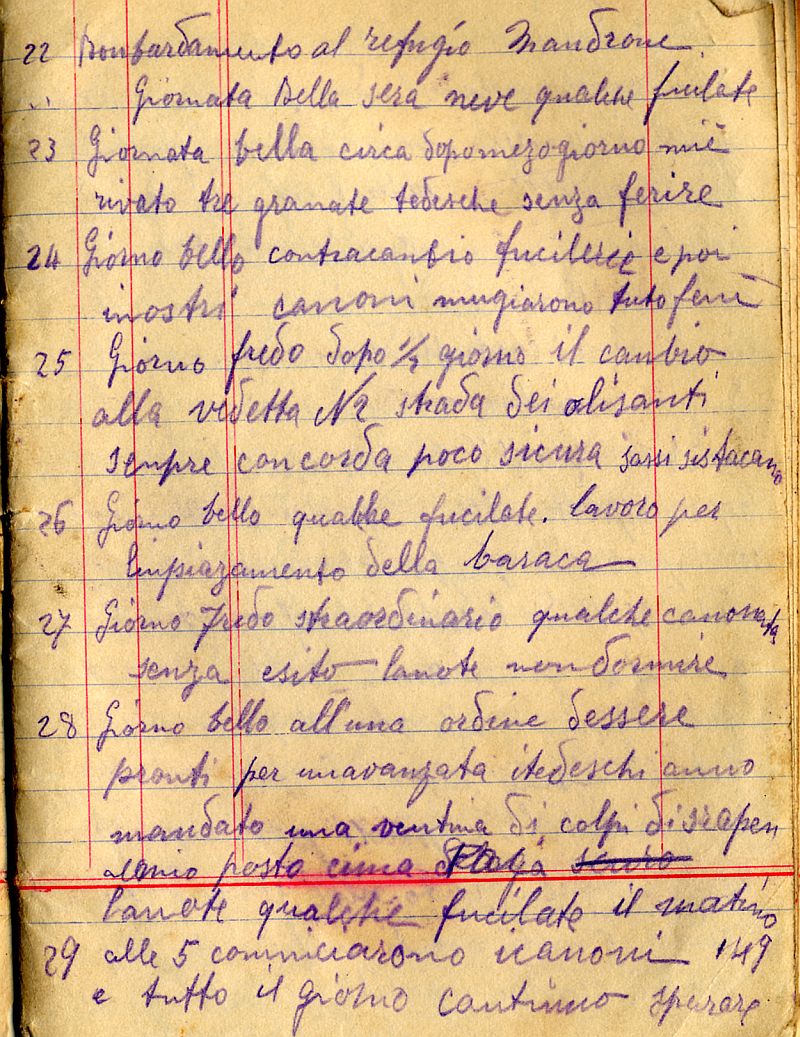 22 Bonbardamento al refugio Mandrone
" Giornata Bella sera neve qualche fucilate
23 Giornata bella circa dopomezogiorno miè
rivato tre granate tedesche senza ferire
24 Giorno bello contracanbio fucilerie e poi
inostri canoni mugiarono tuto
25 Giorno fredo dopo ½ giorno il canbio
alla vedetta N2 strada dei alisanti
senpre concorda poco sicura sassi sistacano
26 Giorno bello qualche fucilate. lavoro per
linpiazamento della baraca
27 Giorno fredo straordinario qualche canonata
senza esito lanote nondormire
28 Giorno bello all'una ordine dessere
pronti per unavanzata itedeschi anno
mandato una ventina di colpi di srapen
posto cima
lanote qualche fucilate il matino
29 alle 5 cominciarono icanoni 149
e tutto il giorno continuo sparare